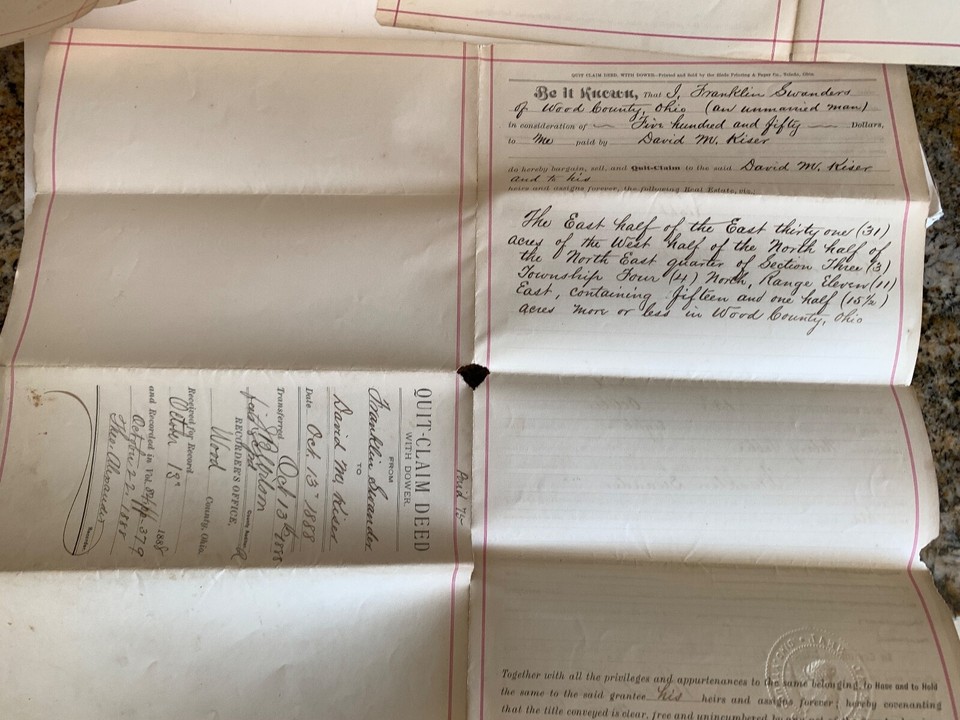 QUIT CLAIM DEED, WITH DOWER.—Printed and Sold by the Blade Printing & Paper Co., Toledo, Ohio
Be it Known, That I, Franklin Swanders
of Wood County, Ohio (an unmarried man)
in consideration of Five hundred and fifty Dollars,
to me paid by David M. Kiser
do hereby bargain, sell, and Quit-Claim to the said David M. Kiser
and to his
heirs and assigns forever, the following Real Estate, viz.:
The East half of the East thirty one (31)
acres of the West half of the North half of
the North East quarter of Section Three (3)
Township Four (4) North, Range Eleven (11)
East, containing fifteen and one half (15½)
acres more or less in Wood County, Ohio
Together with all the privileges and appurtenances to the same belonging, to Have and to Hold
the same to the said grantee his heirs and assigns forever; hereby covenanting
that the title conveyed is clear, free and unincumbered
Paid
QUIT-CLAIM DEED
WITH DOWER.
FROM
Franklin Swander
TO
David M. Kiser
Date Oct. 13" 1888
Transferred Oct 13th 1888
RECORDER'S OFFICE,
Wood County, Ohio.
Received for Record
October 13" 1888
and Recorded in Vol. 379
October 22, 1888
Theo. Alexander
Recorder.